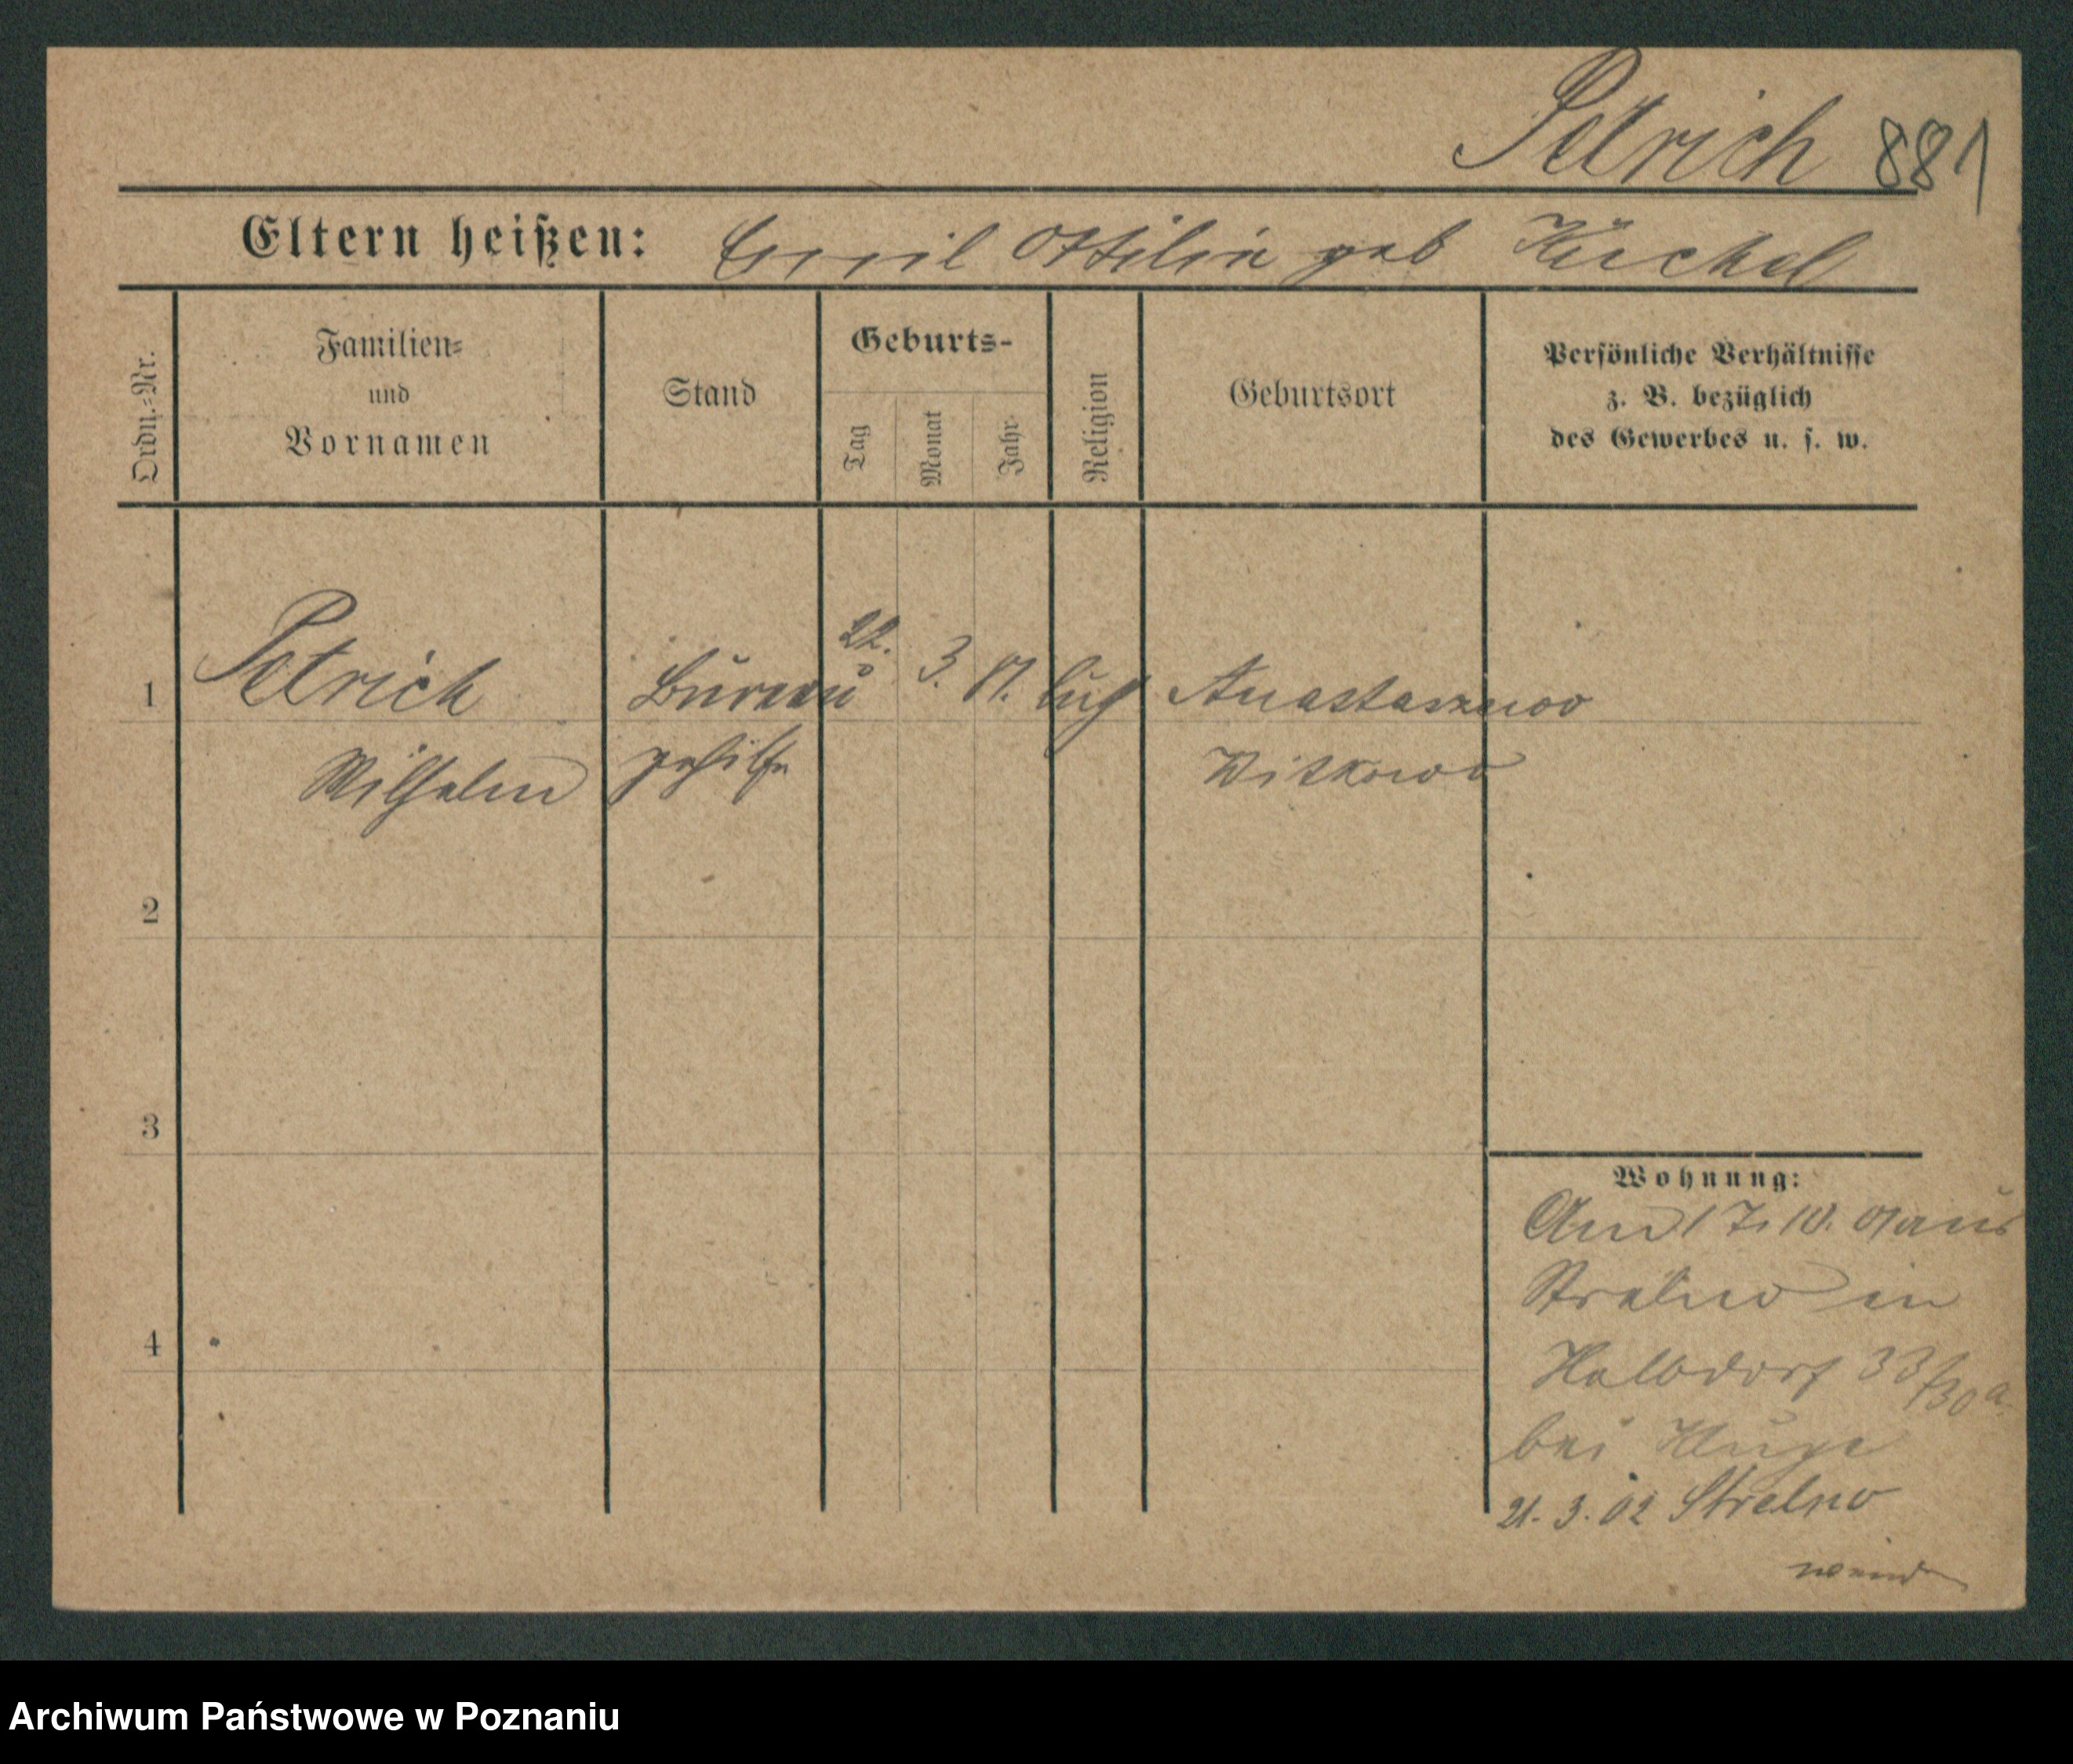 Petrich 881
Eltern heißen: Emil Ottilie geb Küchel
Ordn.-Nr.
Familien-
und
Vornamen
Stand
Geburts-
Tag
Monat
Jahr
Religion
Geburtsort
Persönliche Verhältnisse
z. B. bezüglich
des Gewerbes u. s. w.
1 Petrich Büreau 22. 3. Anastazewo
Wilhelm gehilfe Witkowo
2
3
4
Wohnung:
Am 17. 10. 01 aus
Strelno in
Halbdorf 33/30 a.
bei Kluge
21. 3. 02 Strelno
Archiwum Państwowe w Poznaniu